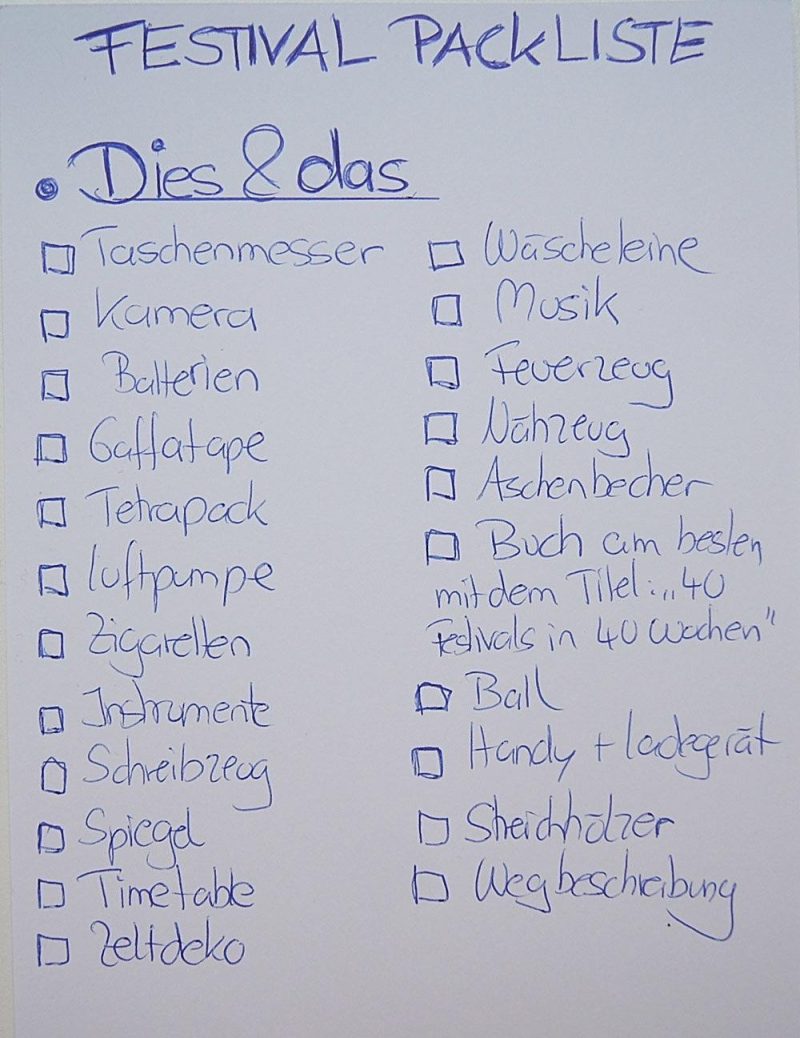 FESTIVAL PACKLISTE
Dies & das
Taschenmesser
Kamera
Batterien
Gaffatape
Tetrapack
Luftpumpe
Zigaretten
Instrumente
Schreibzeug
Spiegel
Timetable
Zeltdeko
Wäscheleine
Musik
Feuerzeug
Nähzeug
Aschenbecher
Buch am besten
mit dem Titel: „40
Festivals in 40 Wochen"
Ball
Handy + Ladegerät
Streichhölzer
Wegbeschreibung